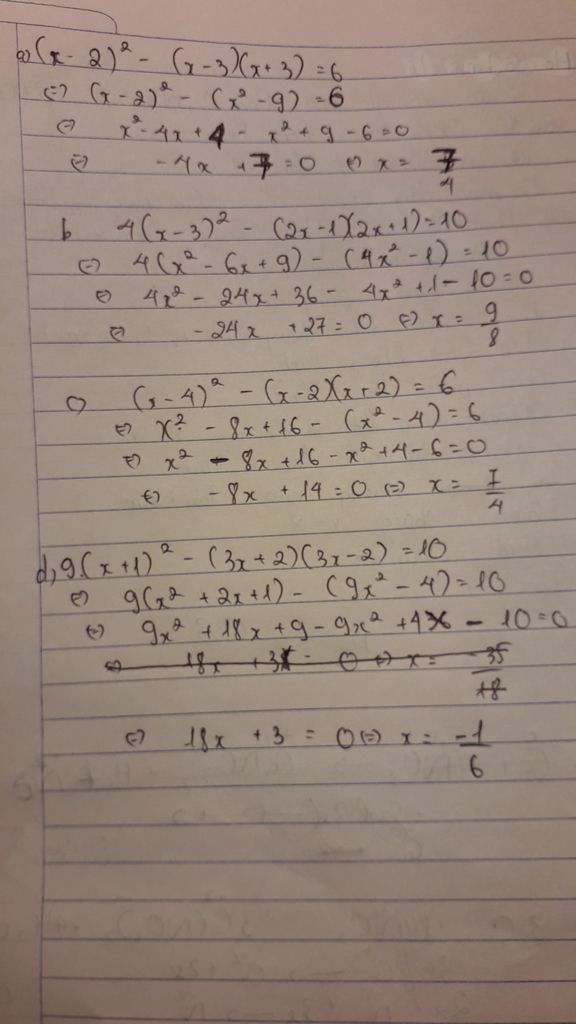 a) (x - 2)² - (x - 3)(x + 3) = 6
⇔ (x - 2)² - (x² - 9) = 6
⇔ x² - 4x + 4 - x² + 9 - 6 = 0
⇔ -4x + 7 = 0 ⇔ x = 7/4
b 4(x - 3)² - (2x - 1)(2x + 1) = 10
⇔ 4(x² - 6x + 9) - (4x² - 1) = 10
⇔ 4x² - 24x + 36 - 4x² + 1 - 10 = 0
⇔ -24x + 27 = 0 ⇔ x = 9/8
c) (x - 4)² - (x - 2)(x + 2) = 6
⇔ x² - 8x + 16 - (x² - 4) = 6
⇔ x² - 8x + 16 - x² + 4 - 6 = 0
⇔ -8x + 14 = 0 ⇔ x = 7/4
d, 9(x + 1)² - (3x + 2)(3x - 2) = 10
⇔ 9(x² + 2x + 1) - (9x² - 4) = 10
⇔ 9x² + 18x + 9 - 9x² + 4 - 10 = 0
⇔ 18x + 3 = 0 ⇔ x = -1/6